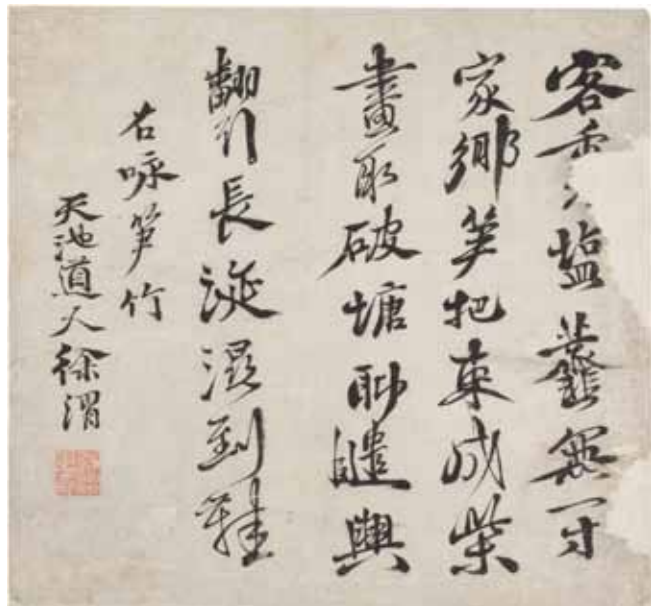 客塩虀無一寸
家鄉笋把束成柴
畫取破塘聊遣興
翻引長涎濕到鞋
右咏笋竹
天池道人徐渭